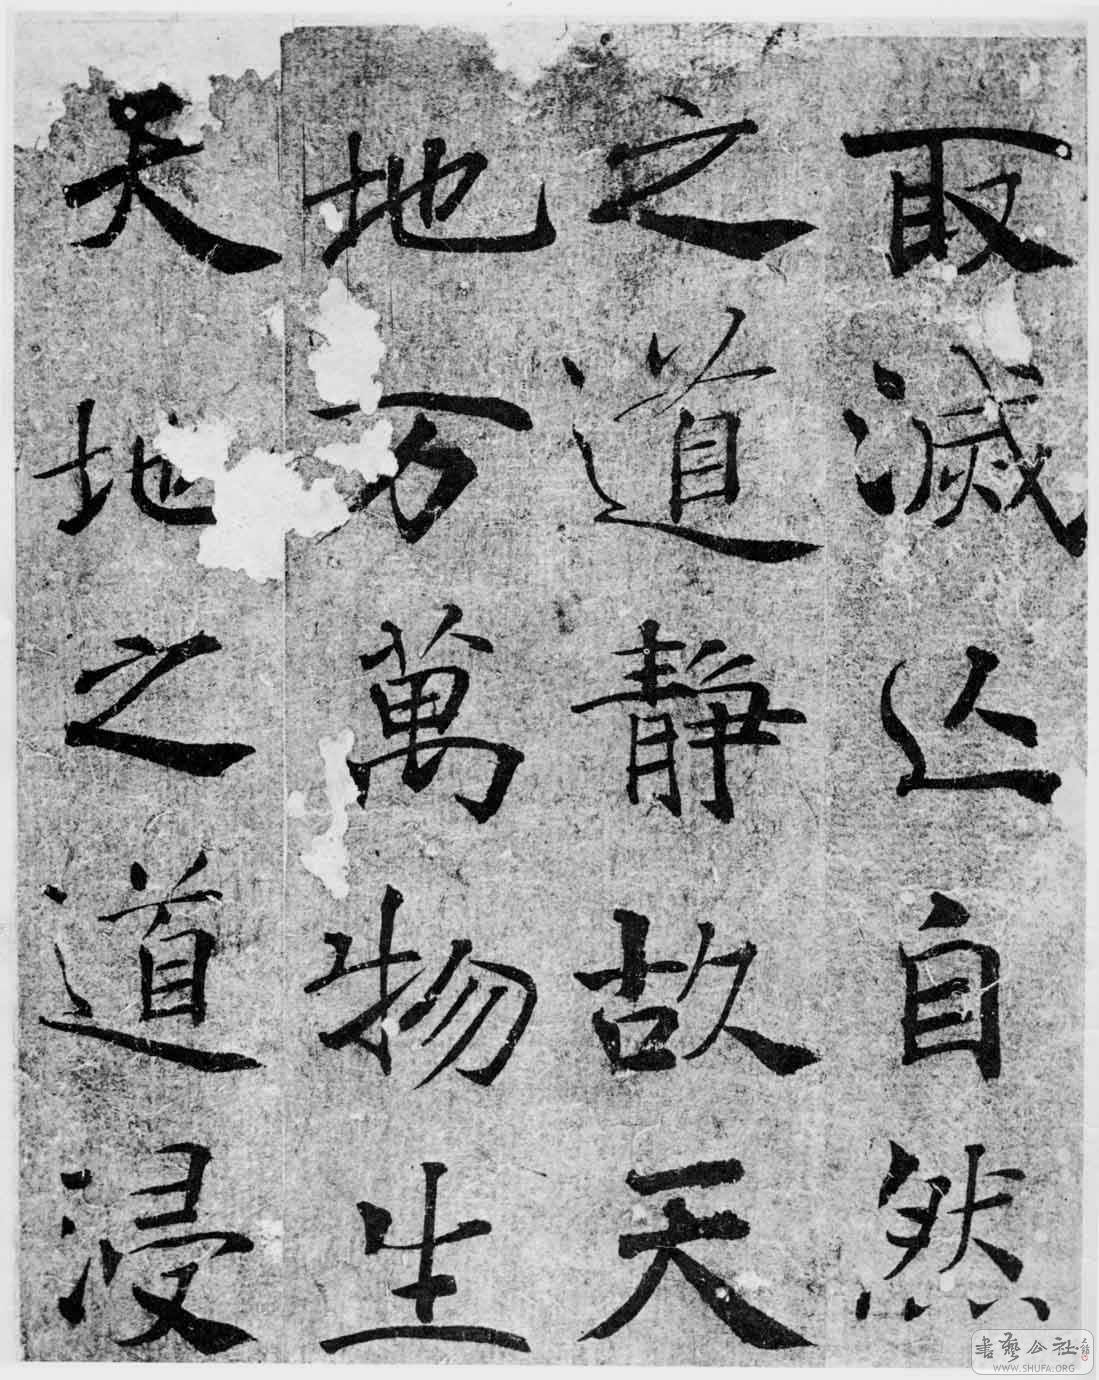 取滅亾自然
之道靜故天
地万萬物生
天地之道浸
書藝公社
WWW.SHUFA.ORG